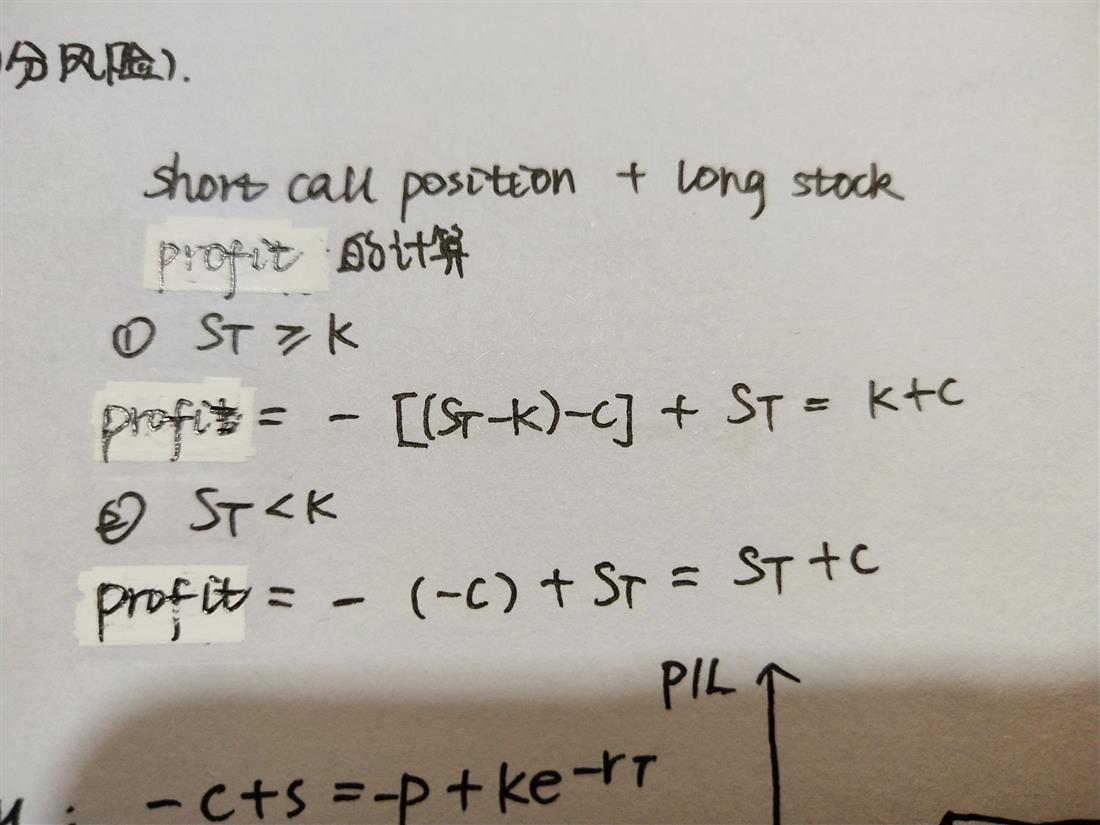 分风险).
short call position + long stock
profit 的计算
① ST ≥ K
profit = - [(ST-K)-C] + ST = K+C
② ST < K
profit = - (-C) + ST = ST + C
P/L
: -C+S = -P + Ke^-rT